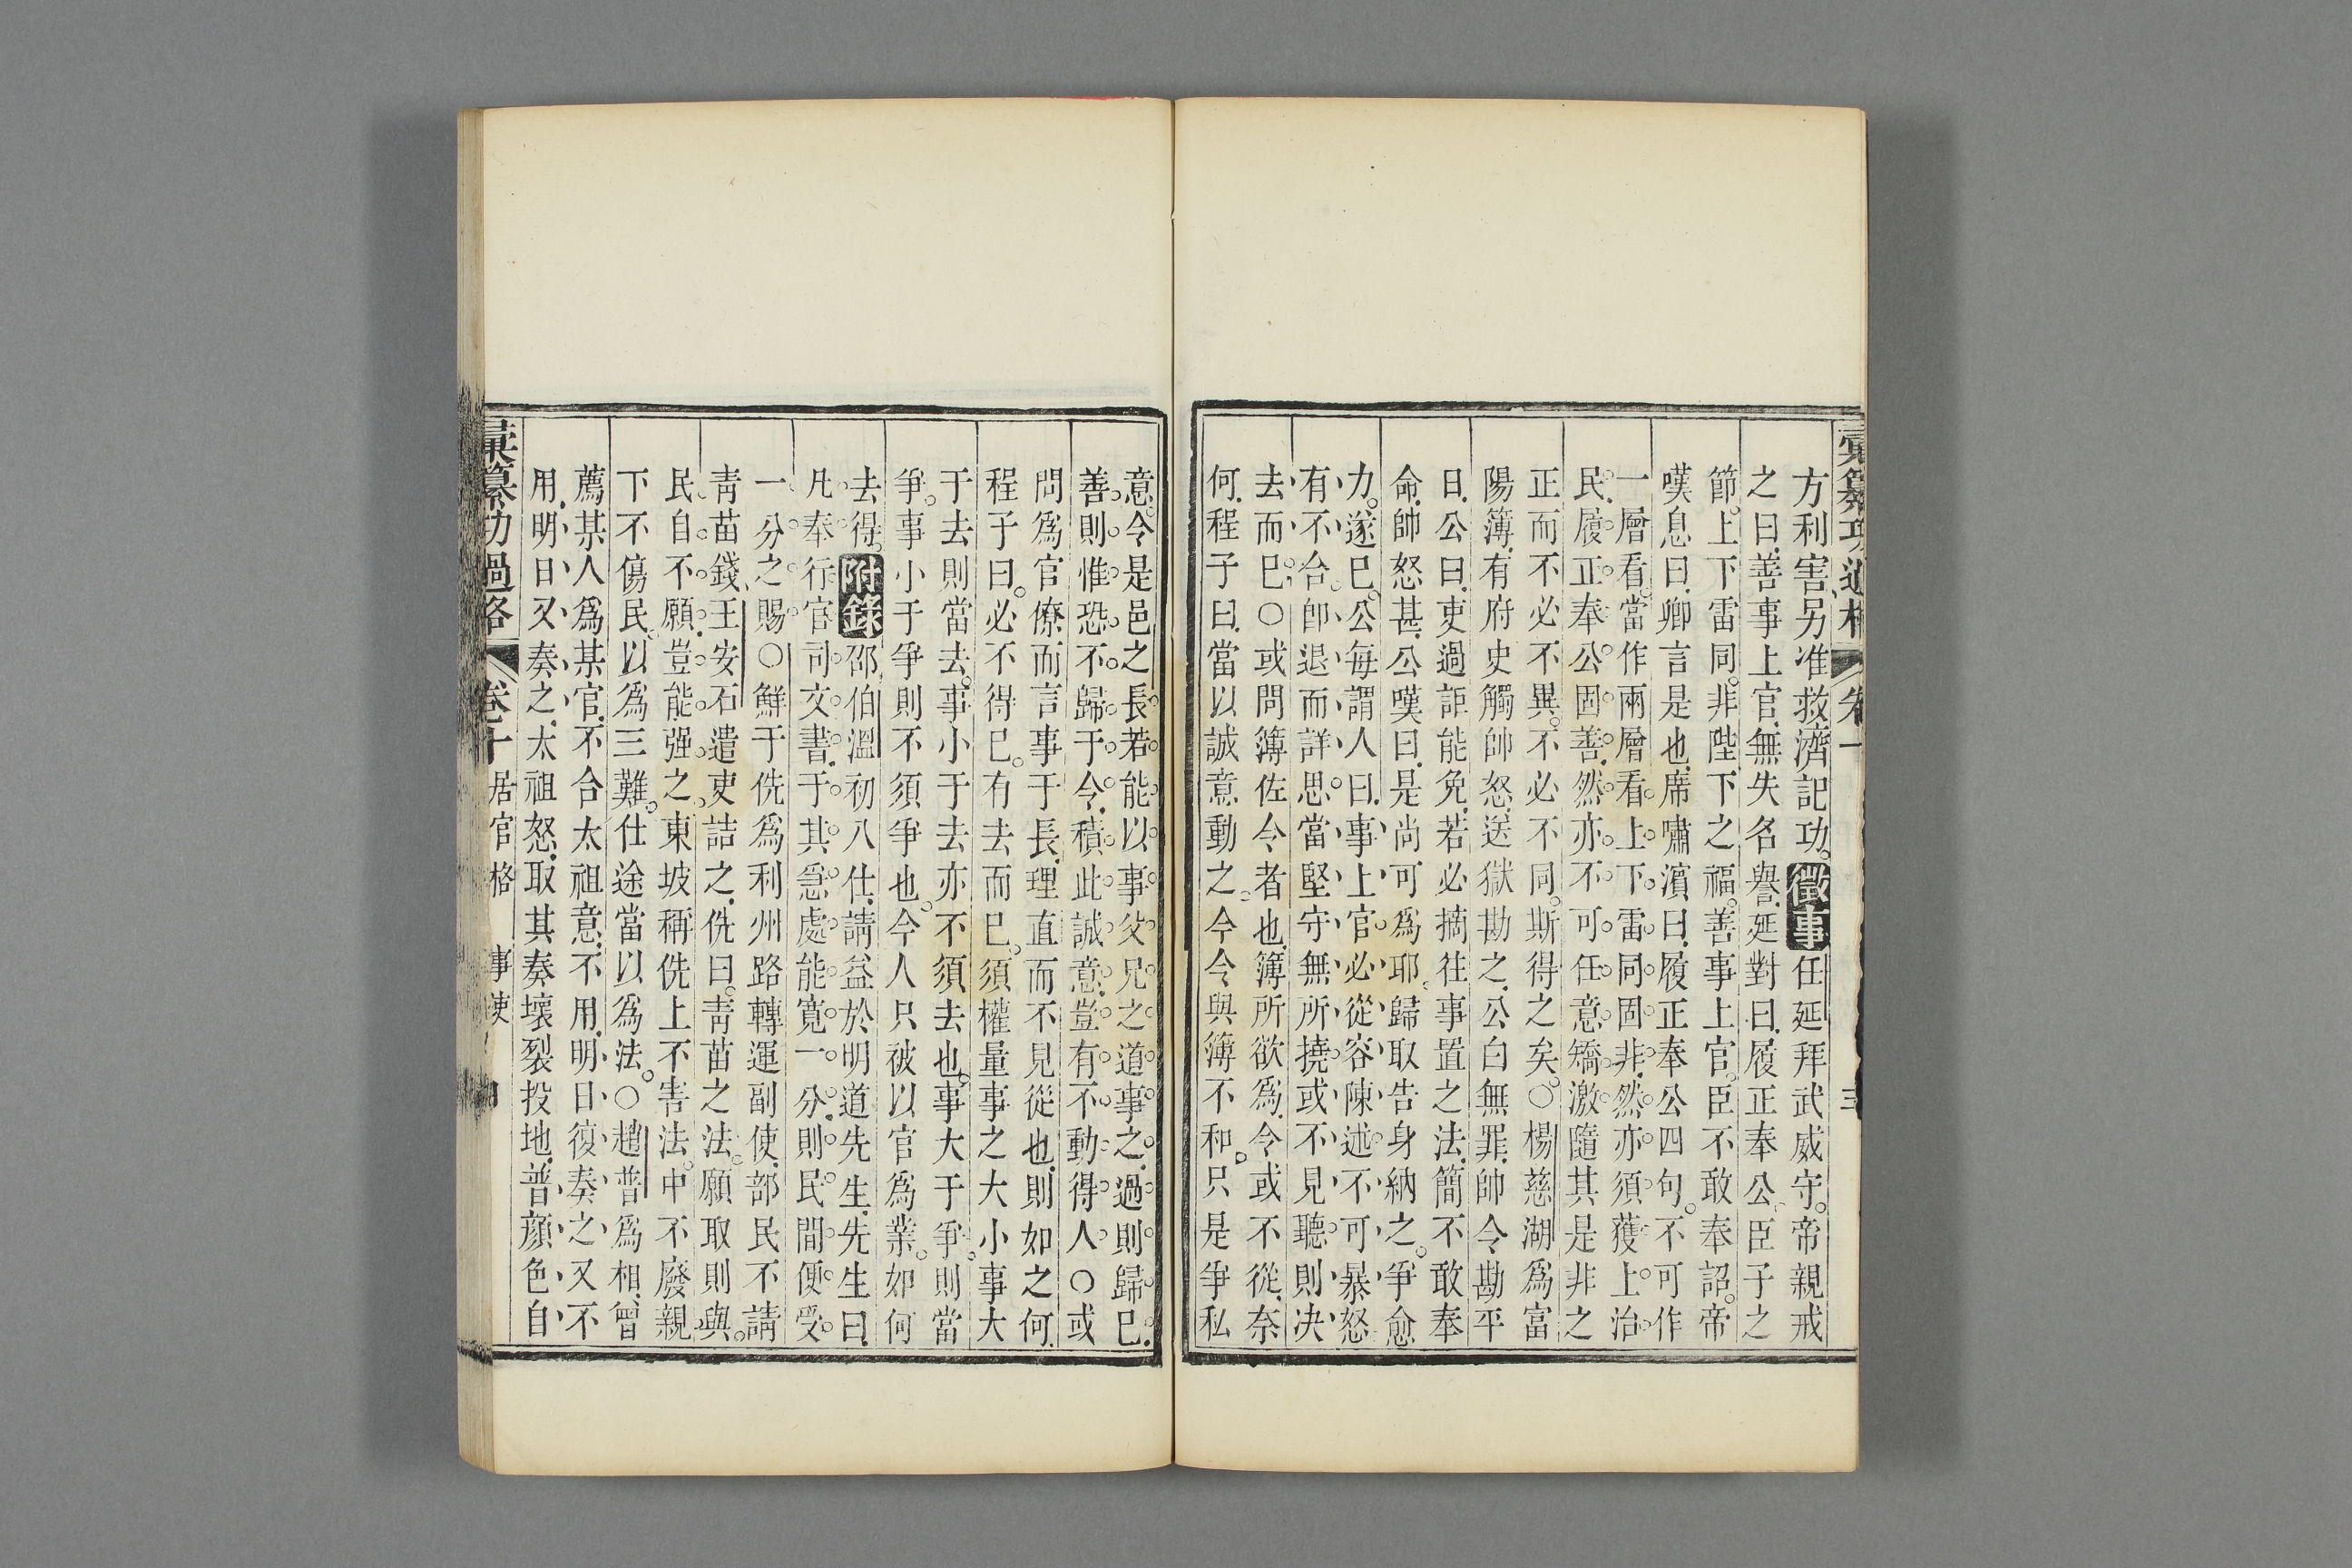 方利害另准救濟記功。徵事任延拜武威守。帝親戒
之曰。善事上官。無失名譽。延對曰。履正奉公。臣子之
節。上下雷同。非陛下之福。善事上官。臣不敢奉詔。帝
嘆息曰。卿言是也。席嘯濱曰。履正奉公四句。不可作
一層看。當作兩層看。上下雷同固非。然亦須獲上治
民。履正奉公固善。然亦不可任意矯激。隨其是非之
正而不必不異。不必不同。斯得之矣。○楊慈湖爲富
陽簿。有府史觸帥怒。送獄勘之。公白無罪。帥令勘平
日。公曰。吏過詎能免。若必摘往事置之法。簡不敢奉
命。帥怒甚。公嘆曰。是尚可爲耶。歸取告身納之。爭愈
力。遂已。公每謂人曰。事上官。必從容陳述。不可暴怒
有不合。卽退而詳思。當堅守無所撓。或不見聽。則决
去而已。○或問簿佐令者也。簿所欲爲。令或不從。奈
何。程子曰。當以誠意動之。今令與簿不和。只是爭私
意。令是邑之長。若能以事父兄之道事之。過則歸已。
善則惟恐不歸于令。積此誠意。豈有不動得人。○或
問爲官僚而言事于長。理直而不見從也。則如之何。
程子曰。必不得已。有去而已。須權量事之大小。事大
于去則當去。事小于去亦不須去也。事大于爭。則當
爭。事小于爭則不須爭也。今人只被以官爲業。如何
去得。附錄邵伯溫初入仕。請益於明道先生。先生曰。
凡奉行官司文書。于其急處能寬一分。則民間便受
一分之賜。○鮮于侁爲利州路轉運副使。部民不請
靑苗錢。王安石遣吏詰之。侁曰。靑苗之法。願取則與。
民自不願。豈能强之。東坡稱侁上不害法。中不廢親
下不傷民。以爲三難。仕途當以爲法。○趙普爲相。曾
薦某人爲某官。不合太祖意。不用。明日復奏之。又不
用。明日又奏之。太祖怒。取其奏壞裂投地。普顔色自
彙纂功過格 卷十 居官格 事使